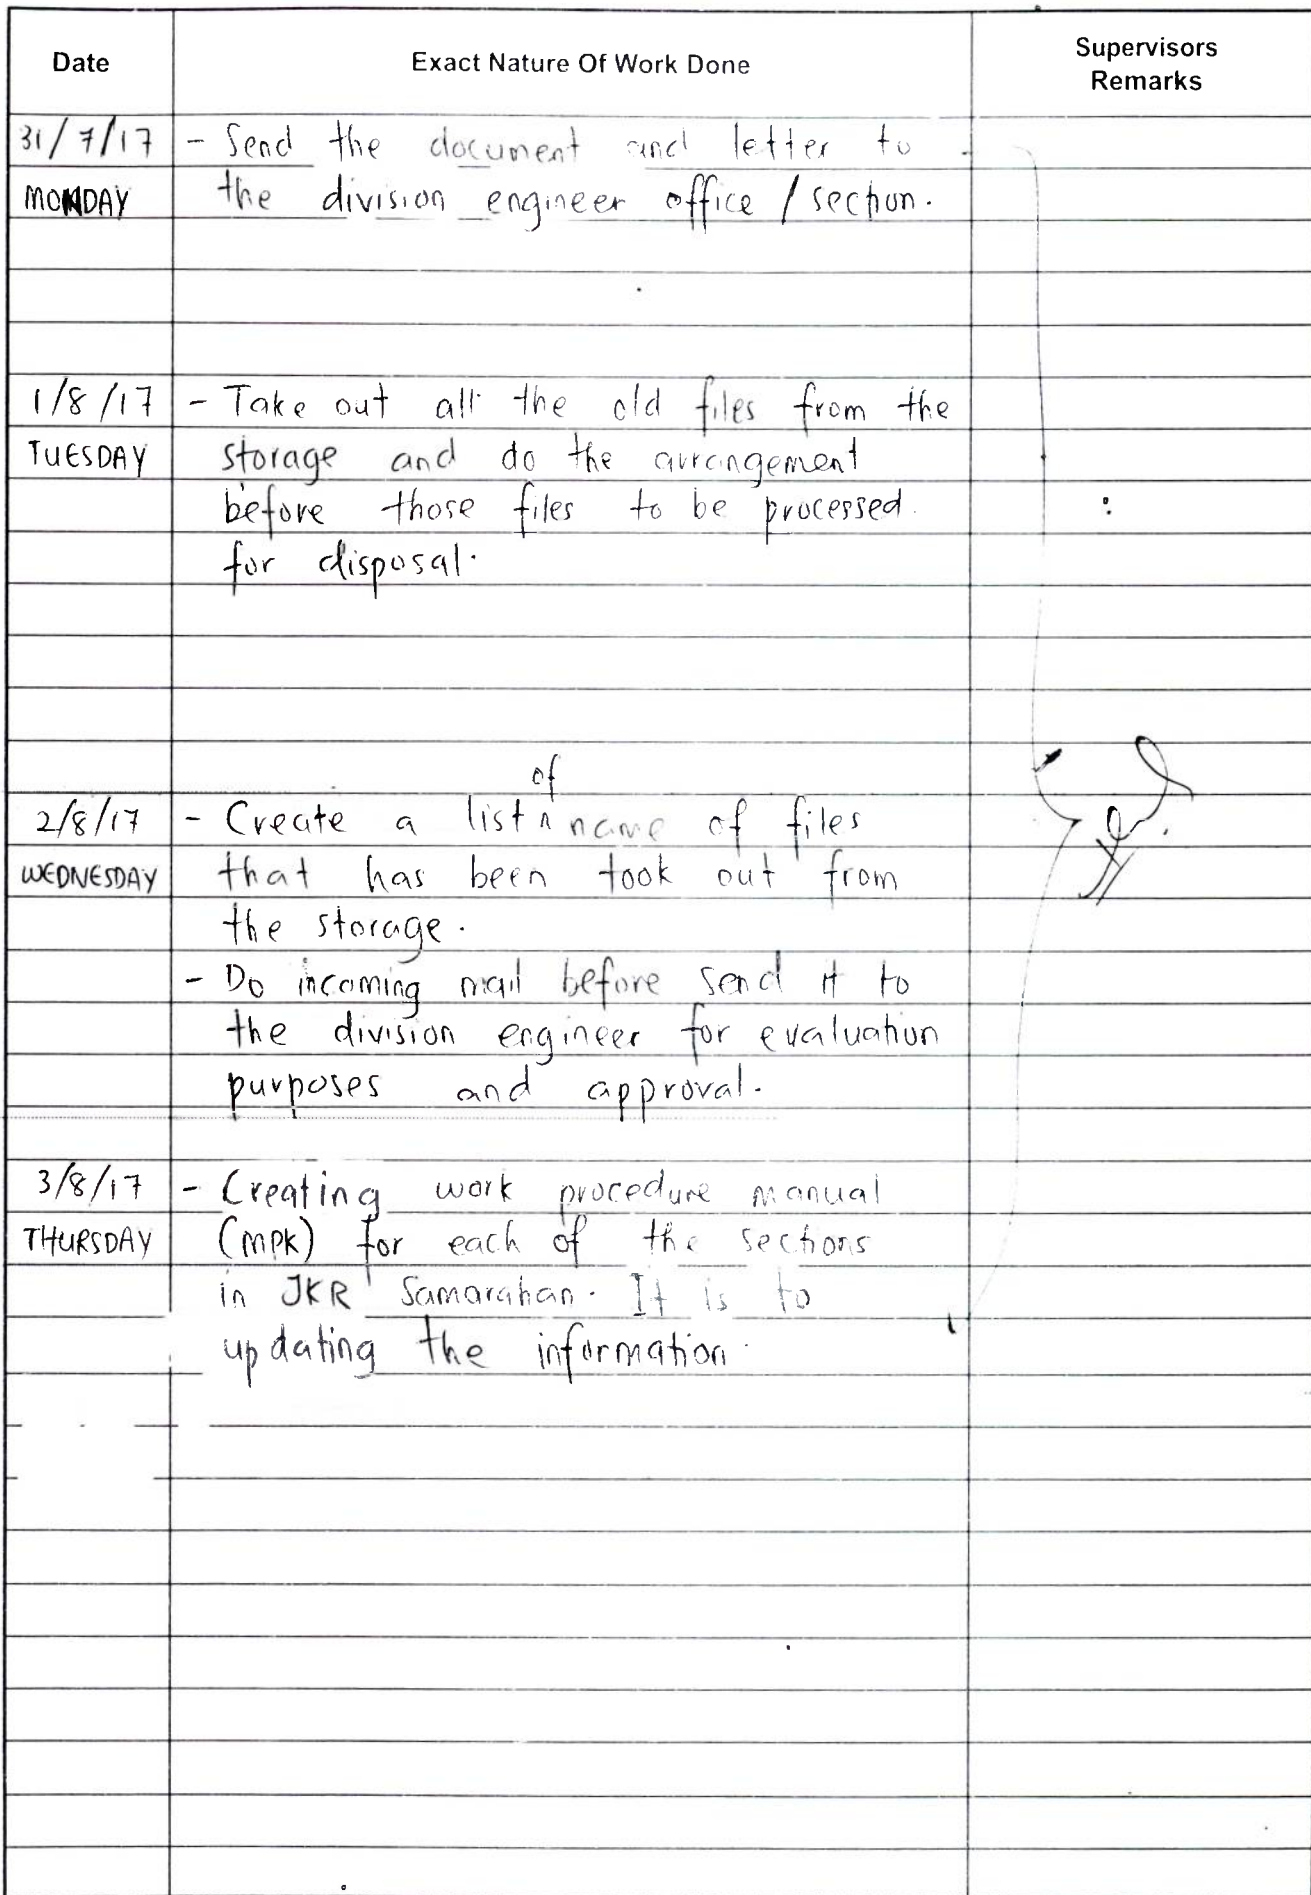 Date Exact Nature Of Work Done Supervisors
Remarks
31/7/17 - Send the document and letter to
MONDAY the division engineer office / section.
1/8/17 - Take out all the old files from the
TUESDAY storage and do the arrangement
before those files to be processed
for disposal.
of
2/8/17 - Create a list ^ name of files
WEDNESDAY that has been took out from
the storage.
- Do incoming mail before send it to
the division engineer for evaluation
purposes and approval.
3/8/17 - Creating work procedure manual
THURSDAY (MPK) for each of the sections
in JKR Samarahan. It is to
updating the information.